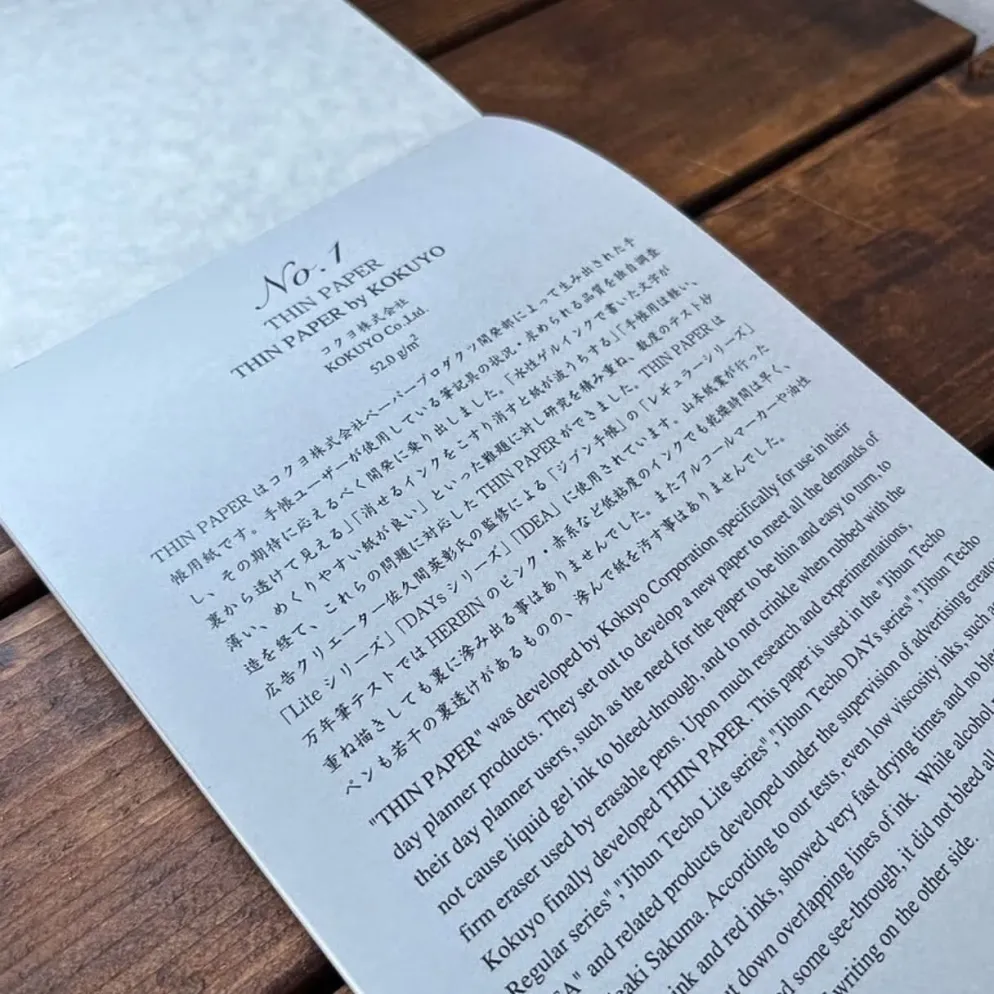 No.1
THIN PAPER
THIN PAPER by KOKUYO
コクヨ株式会社
KOKUYO Co.Ltd.
52.0 g/m²
THIN PAPER はコクヨ株式会社ペーパープロダクツ開発部によって生み出された手
帳用紙です。手帳ユーザーが使用している筆記具の状況・求められる品質を独自調査
し、その期待に応えるべく開発に乗り出しました。「水性ゲルインクで書いた文字が
裏から透けて見える」「消せるインクをこすり消すと紙が波うちする」「手帳用は軽い、
薄い、めくりやすい紙が良い」といった難題に対し研究を積み重ね、数度のテスト抄
造を経て、これらの問題に対応した THIN PAPER ができました。THIN PAPER は
広告クリエーター佐久間英彰氏の監修による「ジブン手帳」の「レギュラーシリーズ」
「Lite シリーズ」「DAYs シリーズ」「IDEA」に使用されています。山本紙業が行った
万年筆テストでは HERBIN のピンク・赤系など低粘度のインクでも乾燥時間は早く、
重ね描きしても裏に滲み出る事はありませんでした。またアルコールマーカーや油性
ペンも若干の裏透けがあるものの、滲んで紙を汚す事はありませんでした。
"THIN PAPER" was developed by Kokuyo Corporation specifically for use in their
day planner products. They set out to develop a new paper to meet all the demands of
their day planner users, such as the need for the paper to be thin and easy to turn, to
not cause liquid gel ink to bleed-through, and to not crinkle when rubbed with the
firm eraser used by erasable pens. Upon much research and experimentations,
Kokuyo finally developed THIN PAPER. This paper is used in the "Jibun Techo
Regular series","Jibun Techo Lite series","Jibun Techo DAYs series","Jibun Techo
" and related products developed under the supervision of advertising
Sakuma. According to our tests, even low viscosity inks, such
and red inks, showed very fast drying times and no
down overlapping lines of ink. While alcohol
some see-through, it did not bleed
writing on the other side.